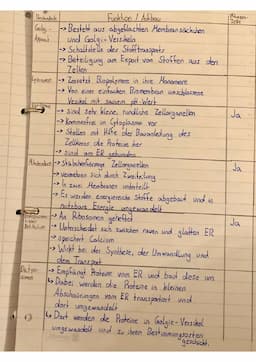 Bestandteil
Funktion / Aufbau
Golgi-
Apparat
→ Besteht aus abgeflachten Membransäckchen
und Golgi-Vesikeln
→ Schaltstelle des Stofftransports
→ Beteiligung am Export von Stoffen aus den
Zellen
Lysosomen
→ Zersetzt Biopolymere in ihre Monomere
→ Von einer einfachen Biomembran umschlossene
Vesikel mit saurem pH-Wert
→ Sind sehr kleine, rundliche Zellorganellen
Ja
→ Kommen frei im Cytoplasma vor
→ Stellen mit Hilfe der Bauanleitung des
Zellkerns die Proteine her
→ sind am ER gebunden
→ Zellorganellen
Ja
→ vermehren sich durch Zweiteilung
→ In zwei Membranen unterteilt
→ Es werden energiereiche Stoffe abgebaut und in
nutzbare Energie umgewandelt
→ An Ribosomen geheftet
Ja
→ Unterscheidet sich zwischen rauen und glatten ER
→ speichert Calcium
→ Wirkt bei der Synthese, der Umwandlung und
dem Transport
→ Empfängt Proteine vom ER und baut diese um
↳ Dabei werden die Proteine in kleinen
Abschnürungen vom ER transportiert und
dort umgewandelt
↳ Dort werden die Proteine in Golgi-Vesikel
umgewandelt und zu ihren Bestimmungsorten
geschickt.